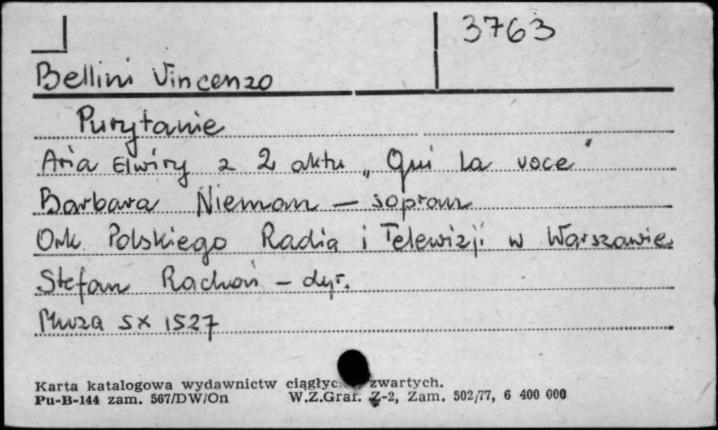 3763
Bellini Vincenzo
Purytanie
Aria Elwiry z 2 aktu „Qui la voce"
Barbara Nieman – sopran
Ork. Polskiego Radia i Telewizji w Warszawie
Stefan Rachoń – dyr.
Muza SX 1527
Karta katalogowa wydawnictw zwartych.
Pu-B-144 zam. 567/DW/On W.Z.Graf. Z-2, Zam. 502/77, 6 400 000